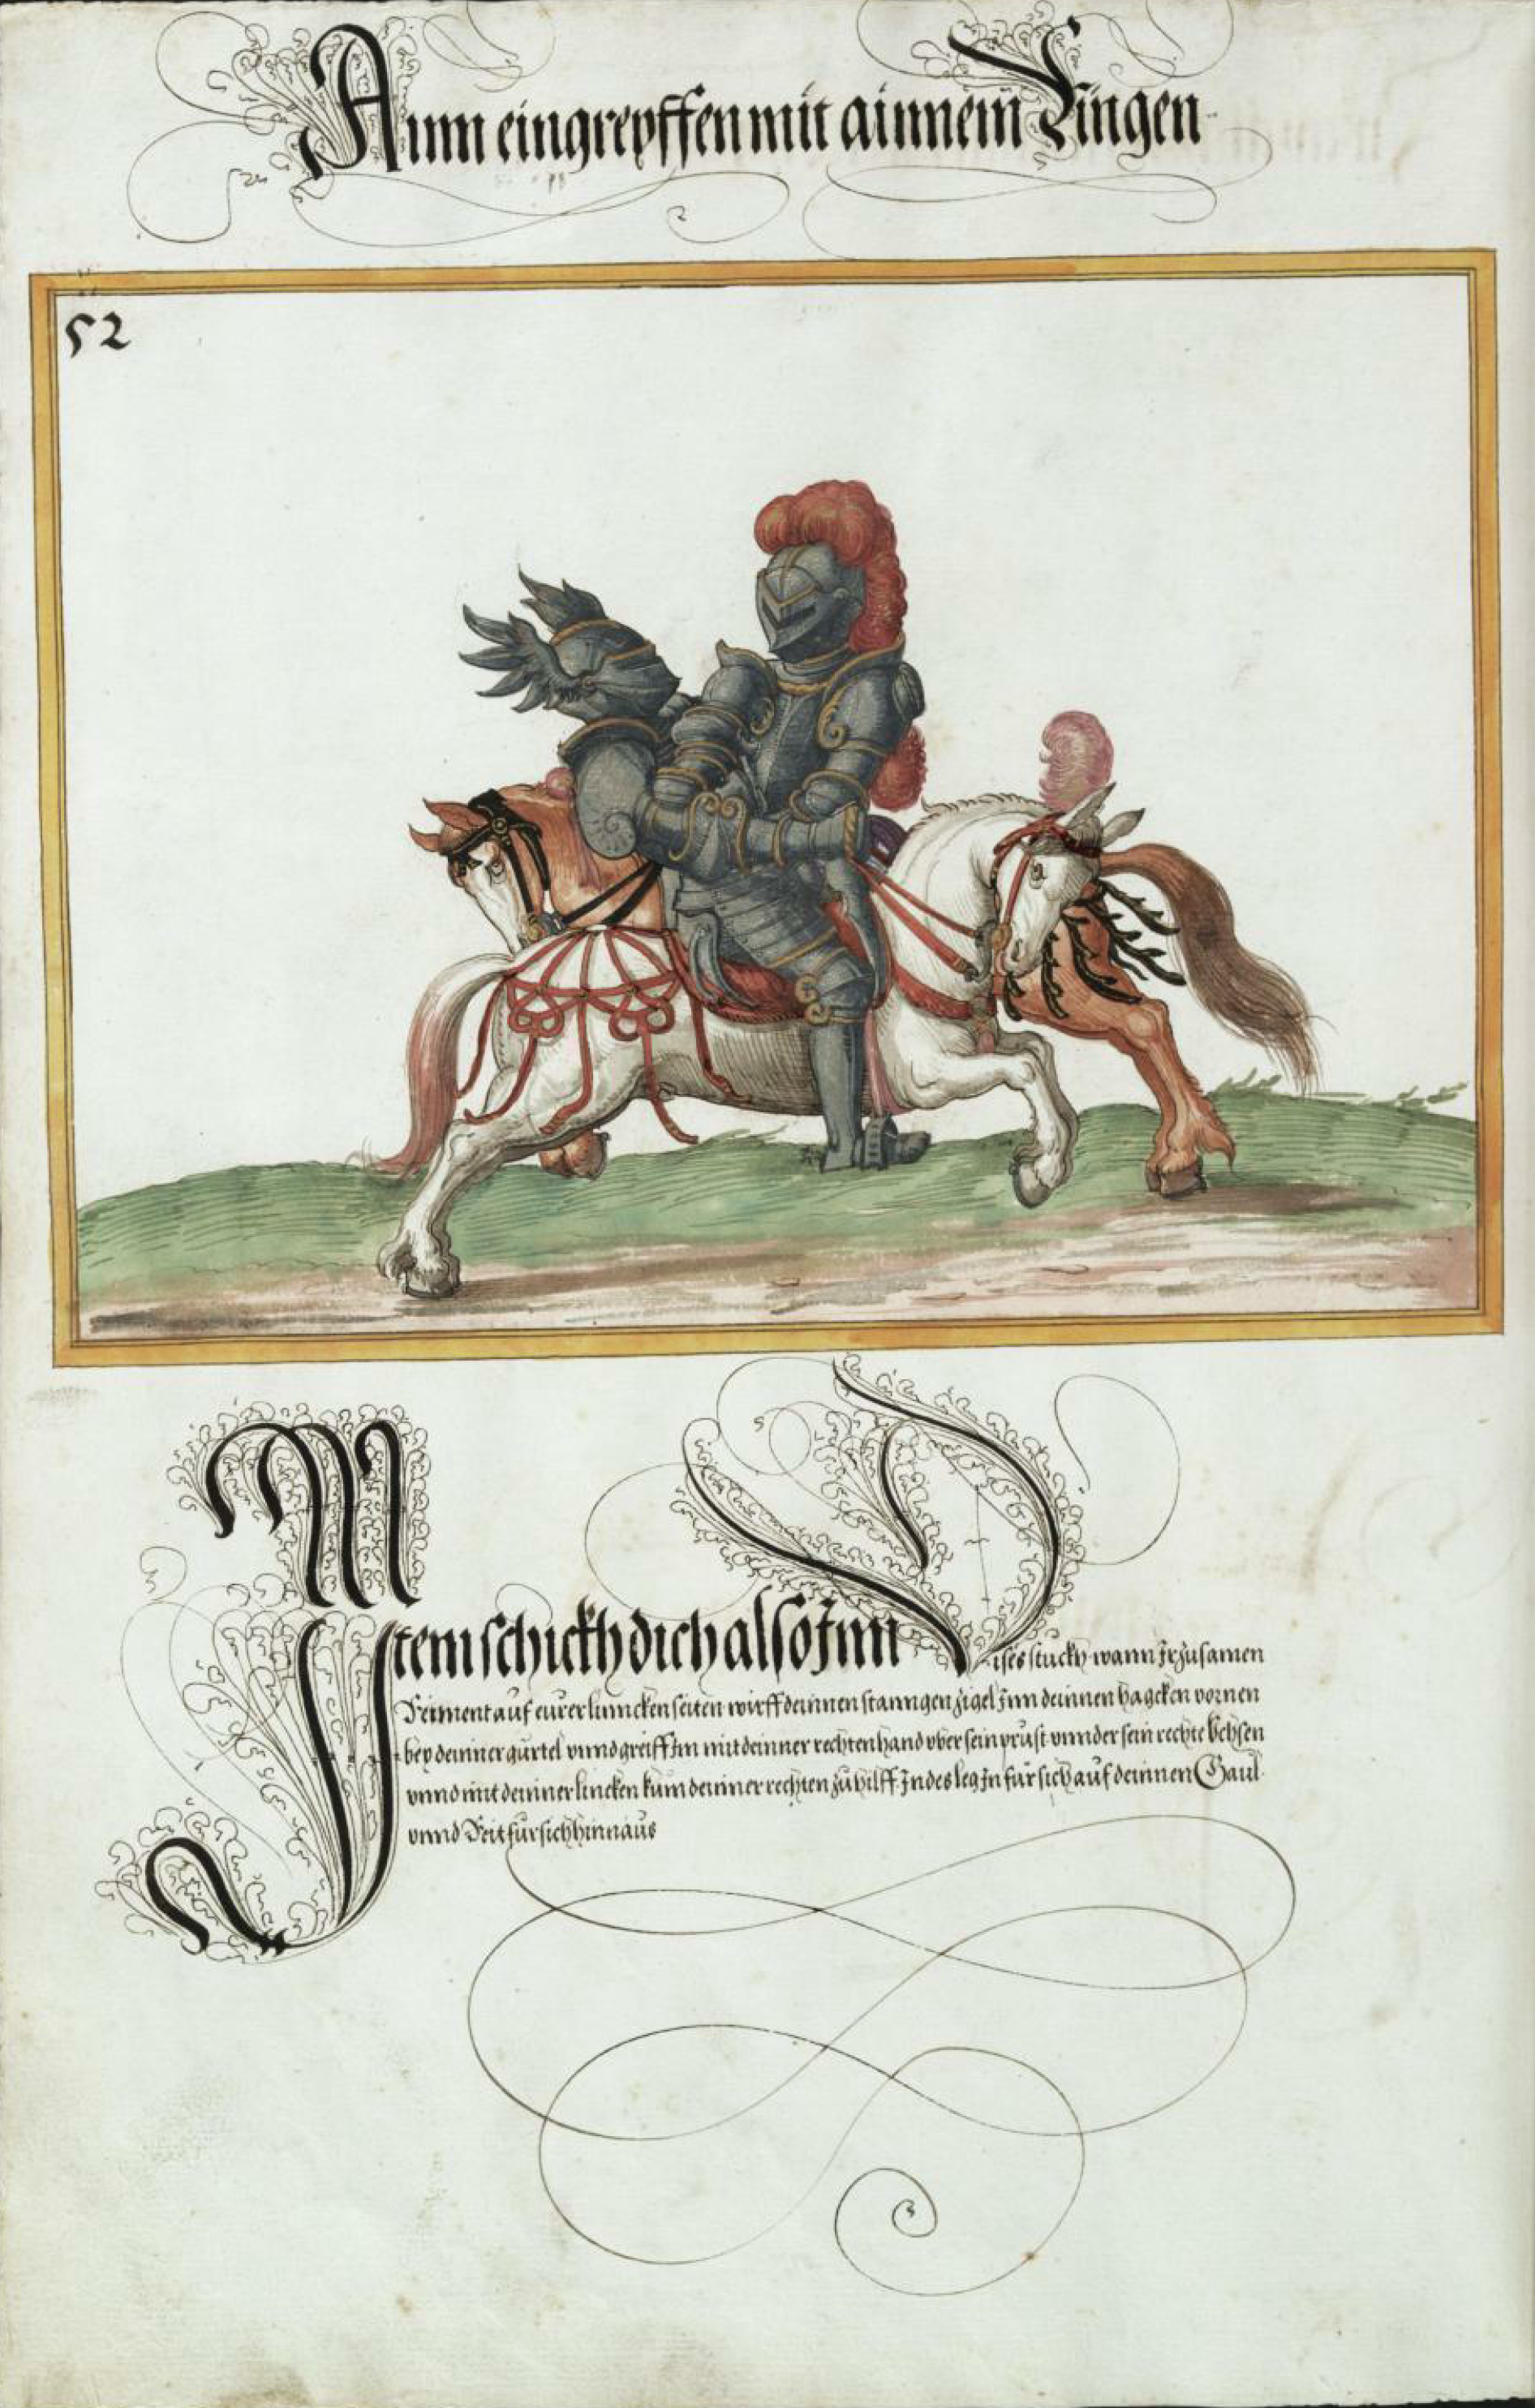 Ainn eingreyffen mit ainnem Ringen
52
Item schickh dich also Inn Dises stuckh wann Ir zusamen
Reimment auf eurer linncken seiten wirff deinnen stanngen zigel Inn deinnen hagcken vornen
bey deinner gurtel vnnd greiff Im mit deinner rechten hand vber sein prust vnnder sein rechte Vchsen
vnnd mit deinner lincken kum deinner rechten zu hilff Indes leg In fur sich auf deinnen Gaul
vnnd Reit fur sich hinnaus